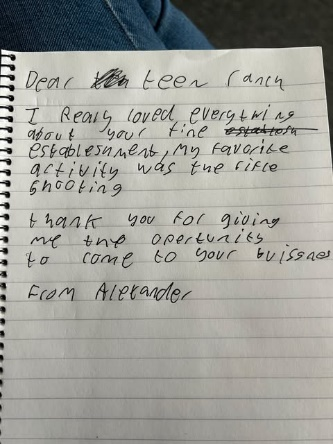 Dear teen ranch
I Realy loved everything
about your fine
estableshment, My favorite
activity was the rifle
shooting
thank you for giving
me the oportunity
to come to your buissnes
From Alexander